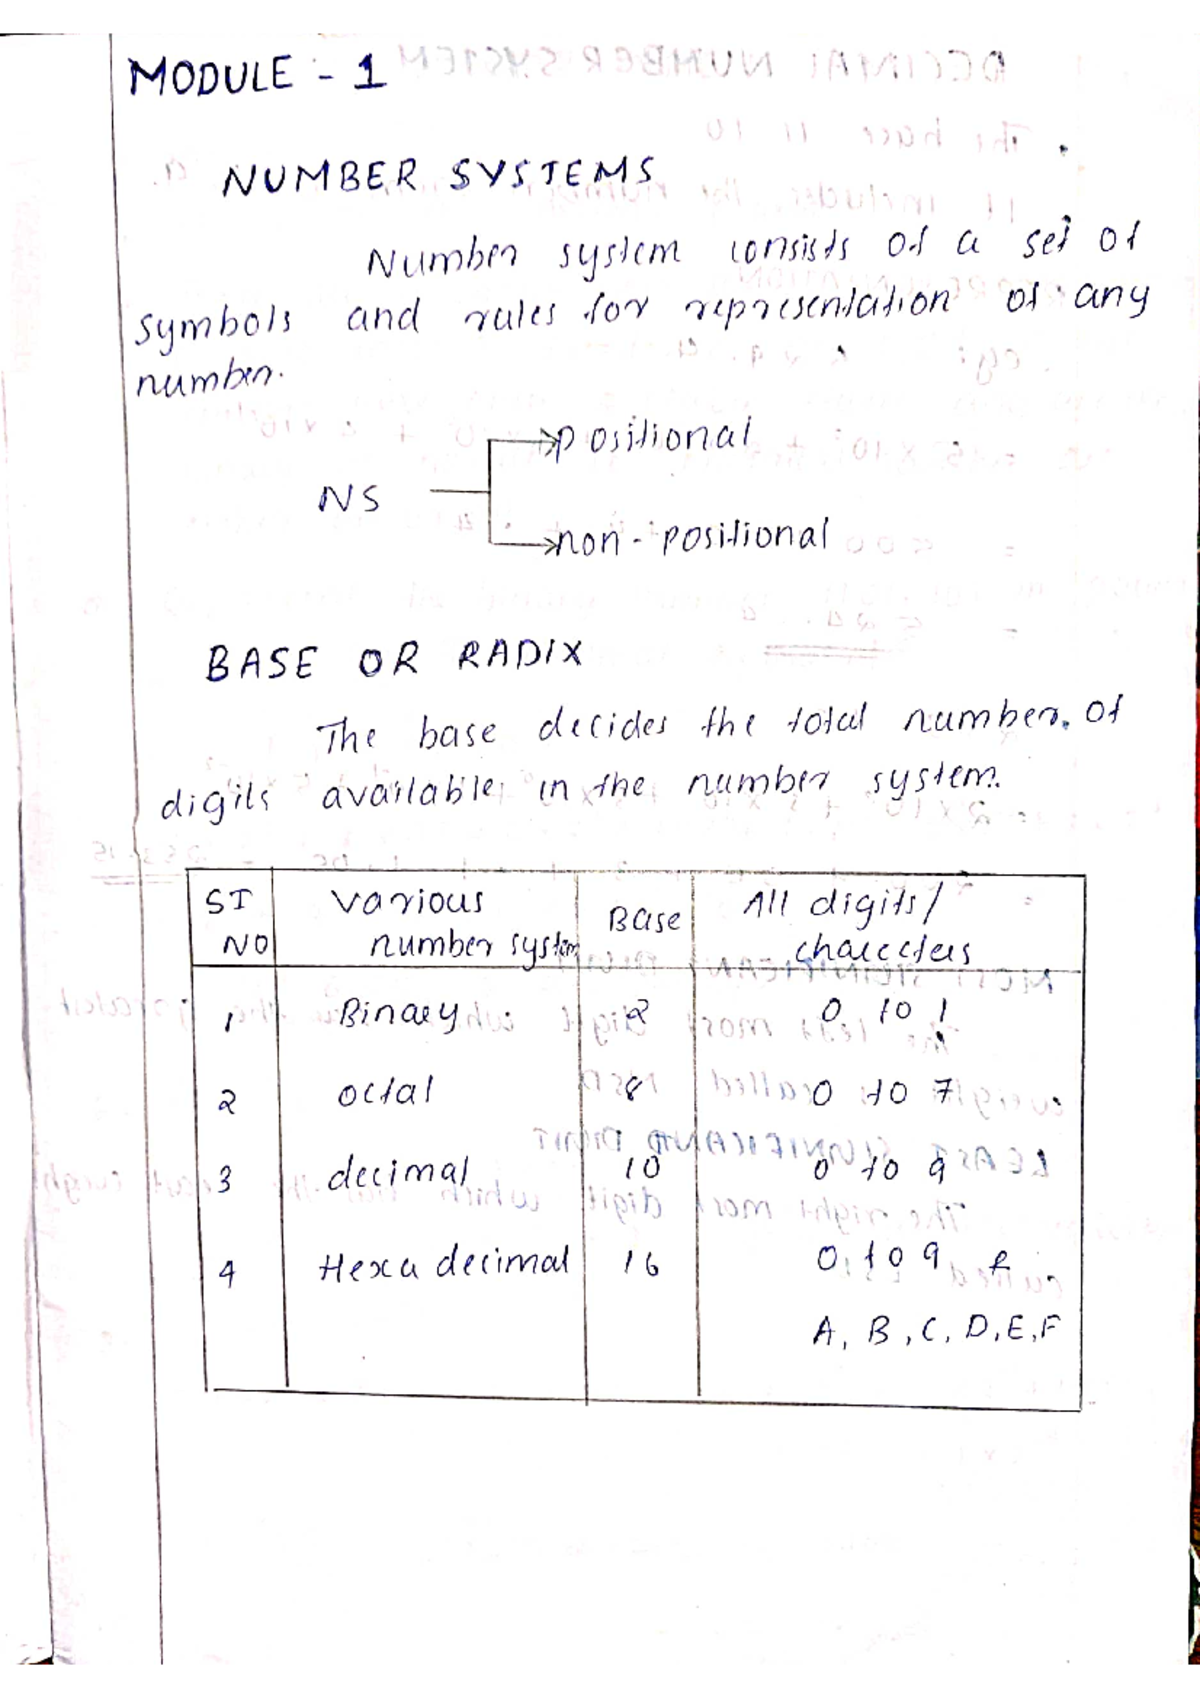 MODULE - 1
NUMBER SYSTEMS
Number system consists of a set of
symbols and rules for representation of any
number.
positional
NS
non-positional
BASE OR RADIX
The base decides the total number of
digits available in the number system.
SI NO | Various number system | Base | All digits/ charecters
1 | Binary | 2 | 0 to 1
2 | octal | 8 | 0 to 7
3 | decimal | 10 | 0 to 9
4 | Hexa decimal | 16 | 0 to 9 &
A, B, C, D, E, F